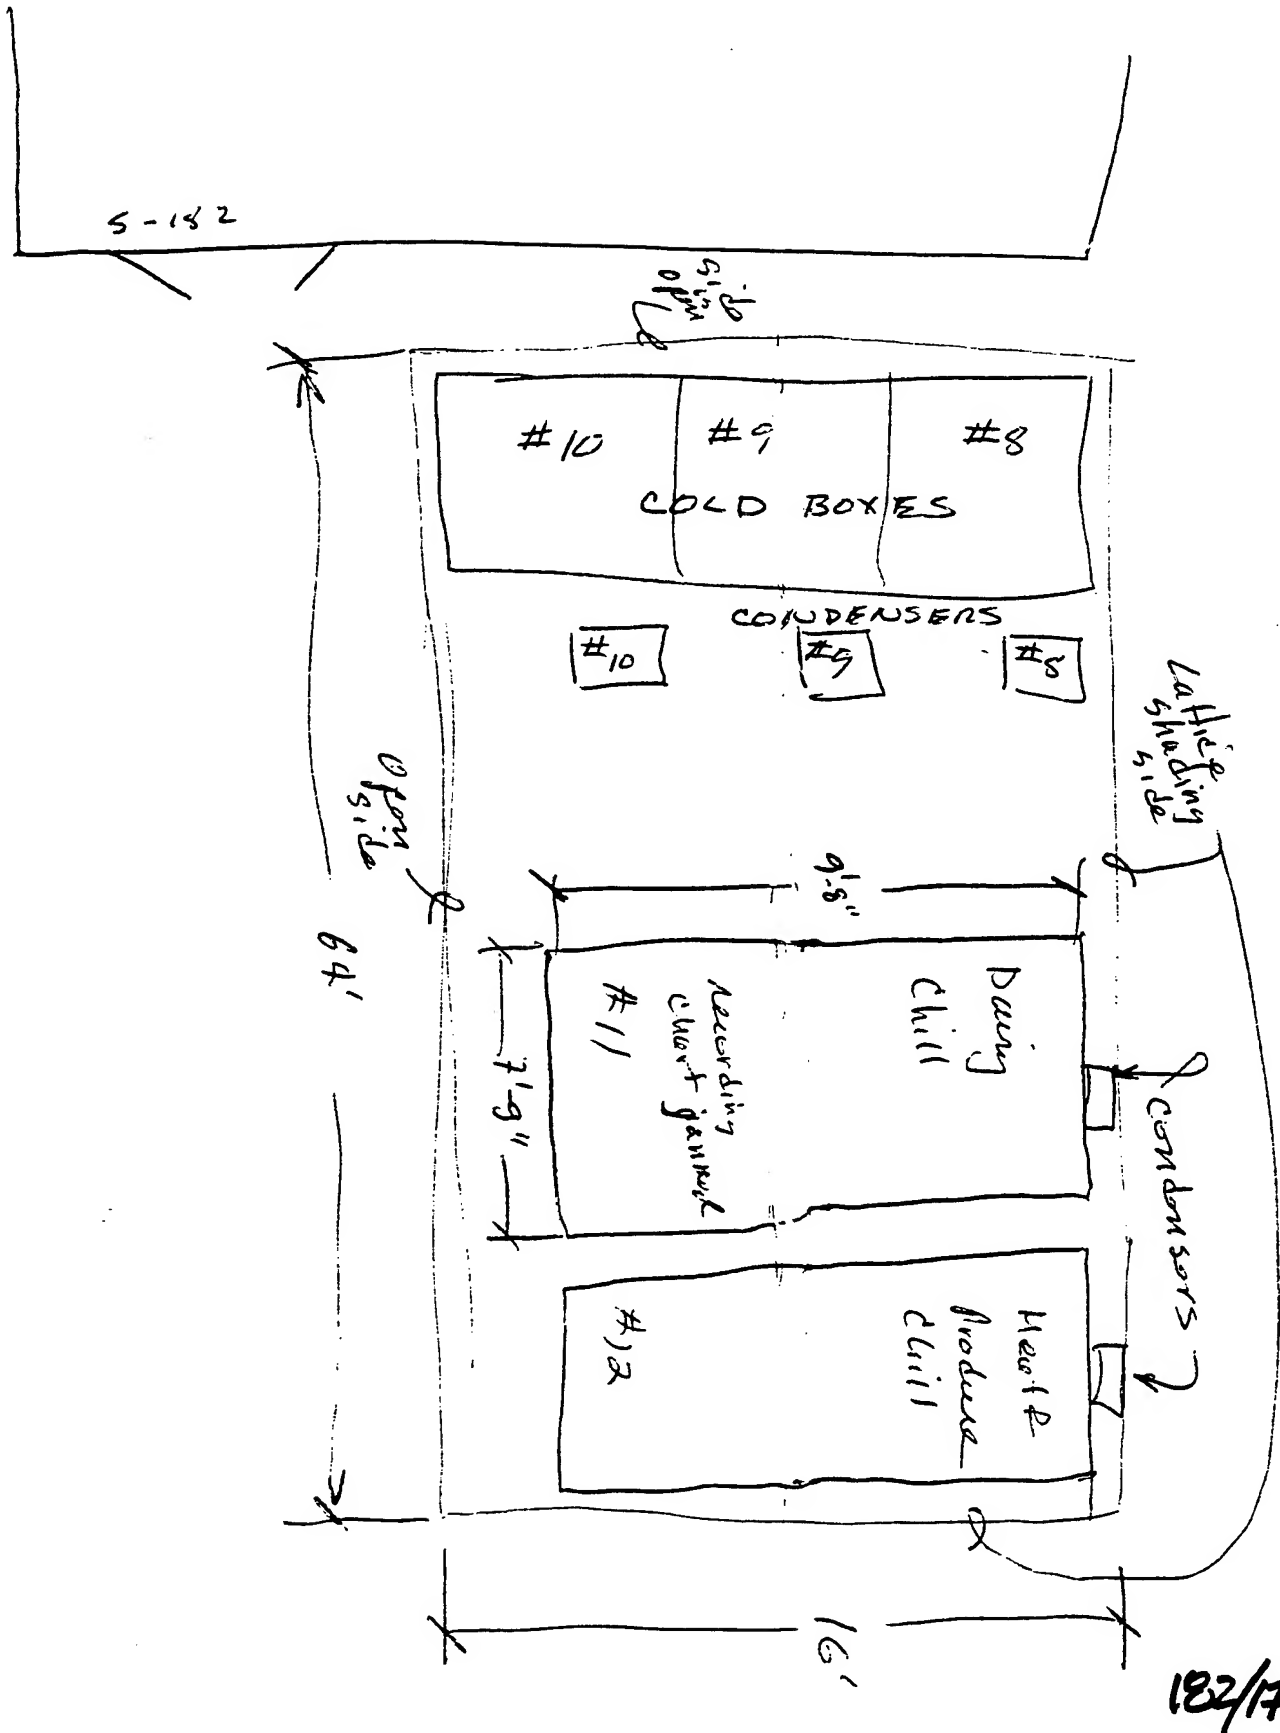 S-182
Open
Side
#10
#9
#8
COLD BOXES
CONDENSERS
#10
#9
#8
Lattice
shading
side
Open
side
9'-8"
64'
Dairy
Chill
recording
chart
#11
7'-9"
Condensors
Meat &
Produce
Chill
#12
16'
182/17